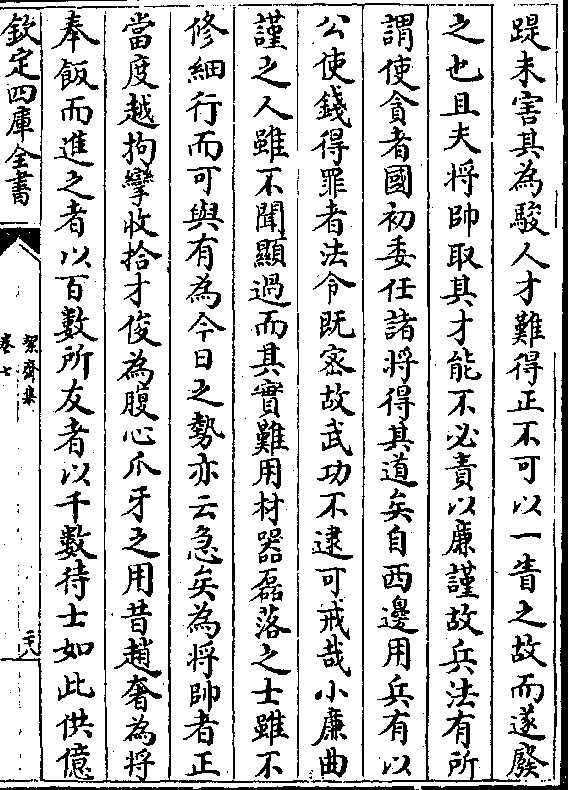 踶未害其為駿人才難得正不可以一眚之故而遂廢
之也且夫將帥取其才能不必責以廉謹故兵法有所
謂使貪者國初委任諸將得其道矣自西邊用兵有以
公使錢得罪者法令既宻故武功不逮可戒哉小廉曲
謹之人雖不聞顯過而其實難用材器磊落之士雖不
修細行而可與有為今日之勢亦云急矣為將帥者正
當度越拘攣收拾才俊為腹心爪牙之用昔趙奢為將
奉飯而進之者以百數所友者以千數待士如此供億
欽定四庫全書
絜齋集
卷七
二十八